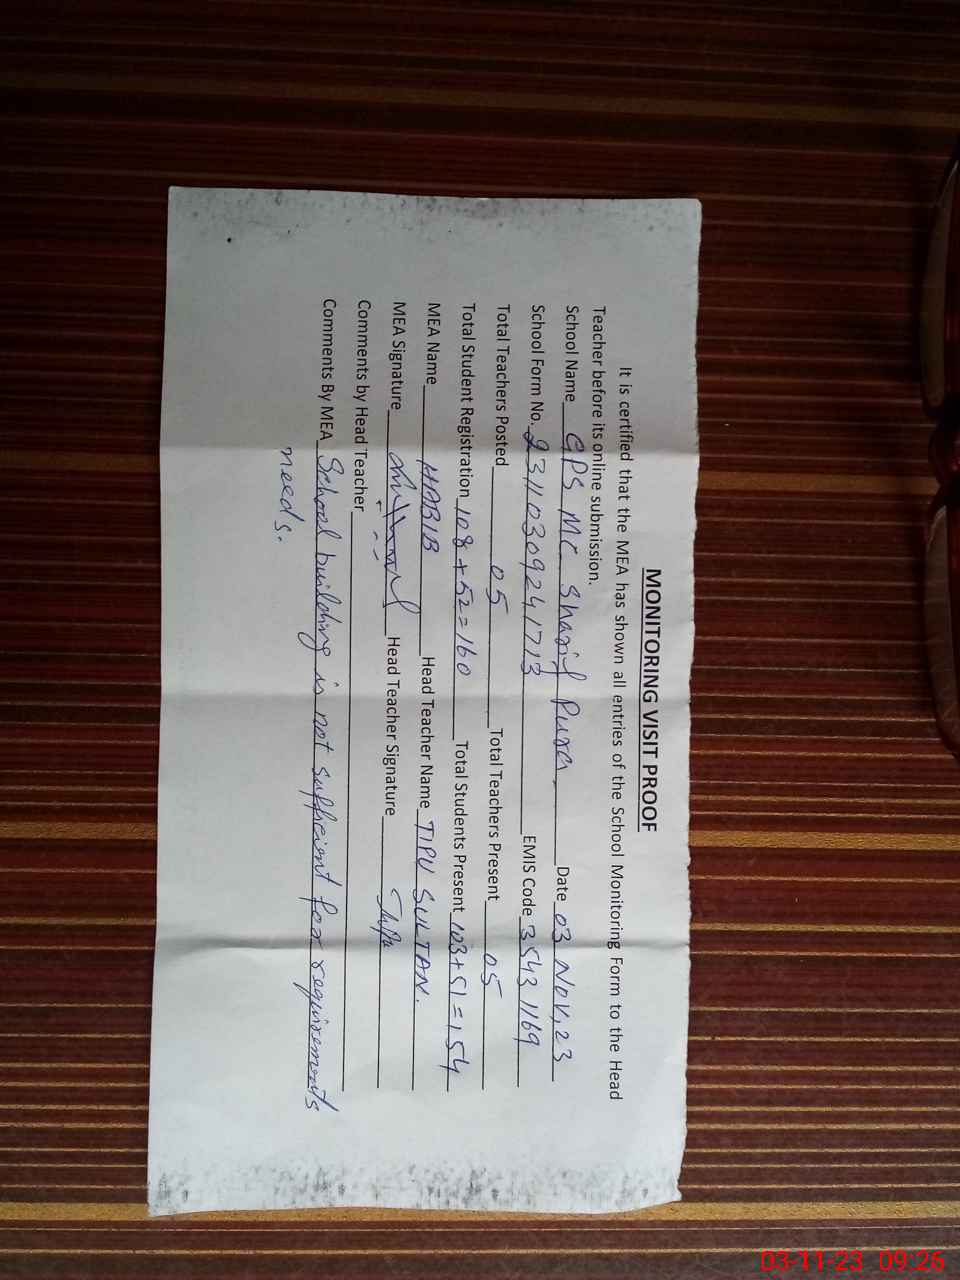 MONITORING VISIT PROOF
It is certified that the MEA has shown all entries of the School Monitoring Form to the Head
Teacher before its online submission.
School Name GPS MC Sharif Pura Date 03 Nov, 23
School Form No. 23110309241713 EMIS Code 35431169
Total Teachers Posted 05 Total Teachers Present 05
Total Student Registration 108+52=160 Total Students Present 103+51=154
MEA Name HABIB Head Teacher Name TIPU SULTAN.
MEA Signature Head Teacher Signature
Comments by Head Teacher
Comments By MEA School building is not sufficient for requirements
needs.
03-11-23 09:26